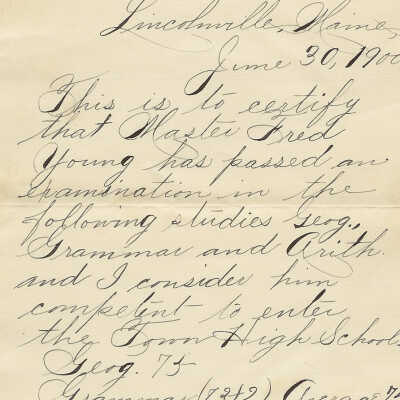 Lincolnville, Maine,
June 30, 1900
This is to certify
that Master Fred
Young has passed an
examination in the
following studies Geog.,
Grammar and Arith.
and I consider him
competent to enter
the Town High School.
Geog. 75
Grammar (72½) Average